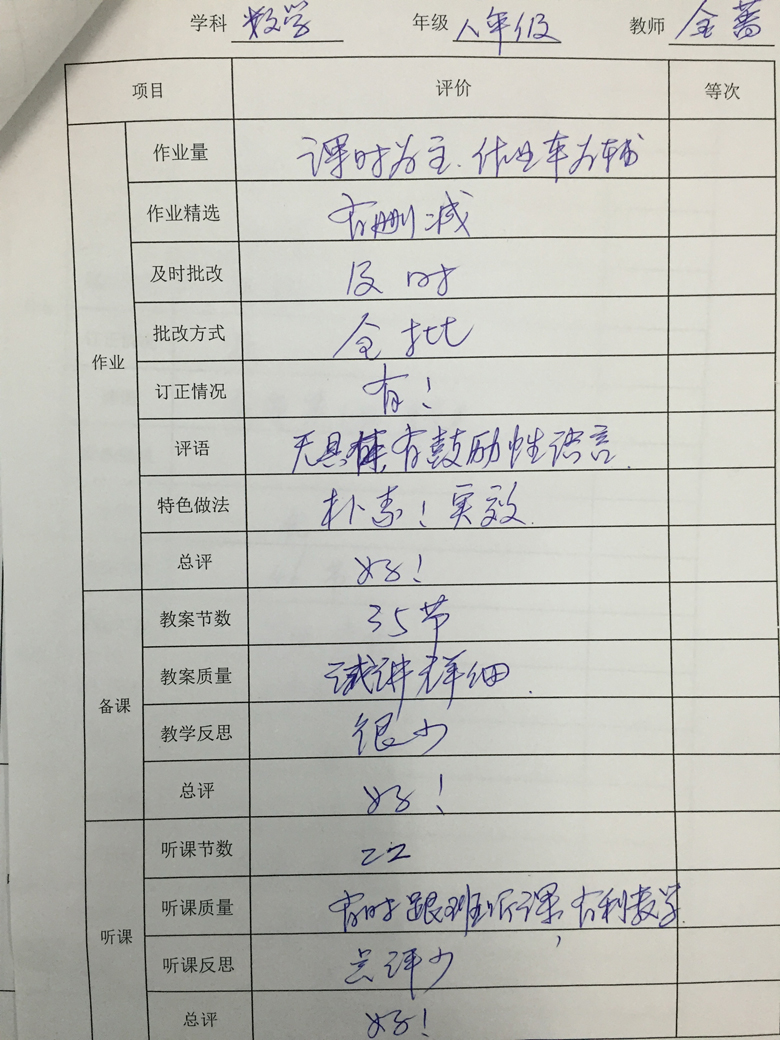 学科 数学 年级 八年级 教师 金蔷
项目 评价 等次
作业
作业量 课时为主.作业本为辅
作业精选 有删减
及时批改 及时
批改方式 全批
订正情况 有!
评语 无具体,有鼓励性语言.
特色做法 朴素!实效.
总评 好!
备课
教案节数 35节
教案质量 详细.
教学反思 很少
总评 好!
听课
听课节数 22
听课质量 有时跟班听课,有利教学.
听课反思 点评少
总评 好!